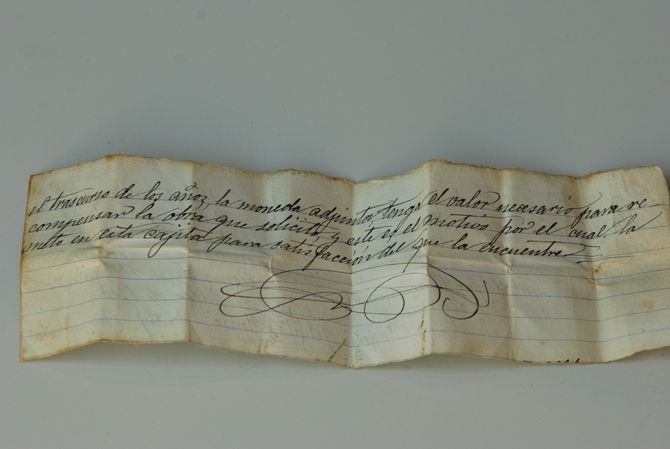 el trascurso de los años, la moneda adjunta, tenga el valor necesario para re
compensar la obra que solicito y este es el motivo por el cual, la
meto en esta cajita para satisfacción del que la encuentre